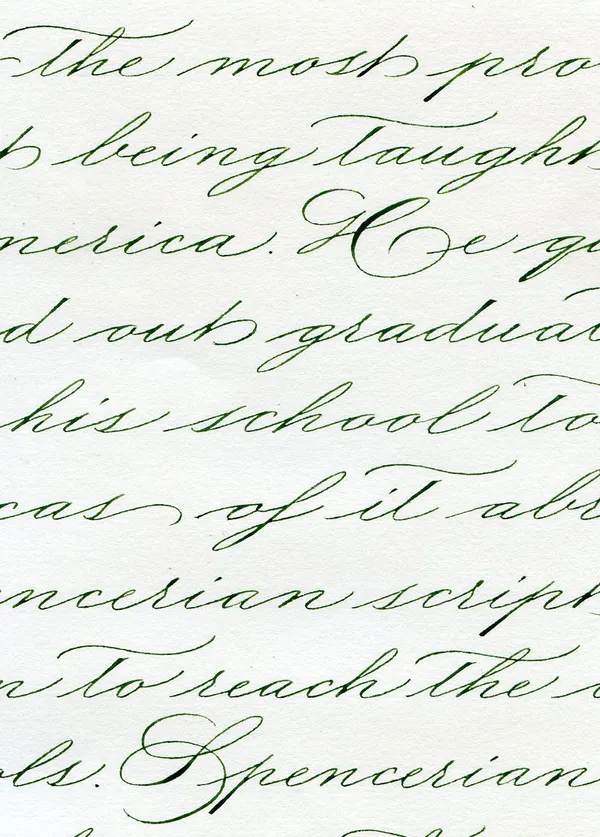 The most pro
being taught
merica. He
d out graduat
his school to
cas of it abr
ncerian script
n to reach the
ols. Spencerian